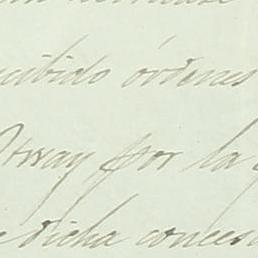 cibido órdenes
Otway por la
dicha conces